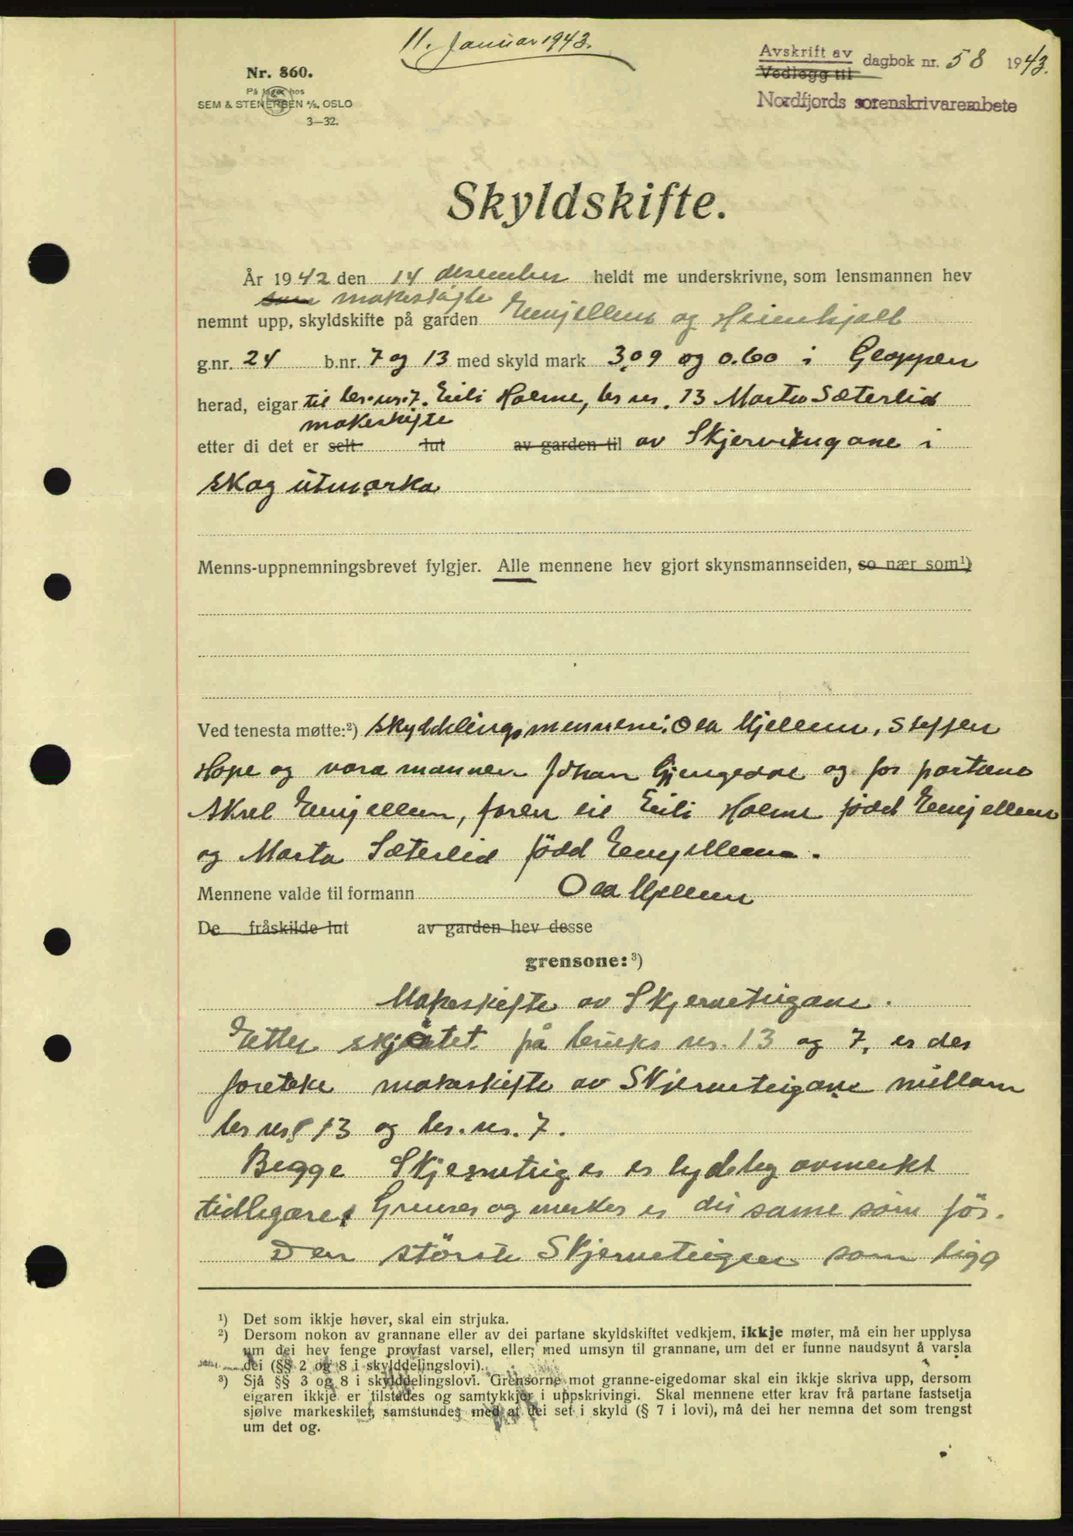 11. Januar 1943.
Avskrift av
Vedlegg til
dagbok nr. 58 1943.
Nordfjords sorenskrivarembete
Nr. 860.
På lager hos
SEM & STENERSEN A/S, OSLO
3—32.
Skyldskifte.
År 1942 den 14 desember heldt me underskrivne, som lensmannen hev
som makeskifte
nemnt upp, skyldskifte på garden Evujellens og Heienhjall
g.nr. 24 b.nr. 7 og 13 med skyld mark 3,09 og 0.60 i Gloppen
herad, eigar til br.nr. 7. Eili Holme, br nr. 13 Marta Sæterlid
makeskifte
etter di det er selt lut av garden til av Skjerveteigane i
skog utmarka
Menns-uppnemningsbrevet fylgjer. Alle mennene hev gjort skynsmannseiden, so nær som¹)
Ved tenesta møtte:²) skylddelingsmennene: Ola Mjellem, Steffen
Hope og vara mannen Johan Gjengedal og for partane
Aksel, faren til Eili Holme född
og Marta Sæterlid född
Mennene valde til formann Ola Mjellem
De fråskilde lut av garden hev desse
grensone:³)
Makeskifte av Skjerveteigane.
Etter skjøtet på bruks nr. 13 og 7, er der
foreteke makeskifte av Skjerveteigane millom
br nr 13 og br. nr. 7.
Begge Skjerveteiger er tydeleg avmerkt
tidlegare, Grenser og merker er dei same som för.
Den störste Skjerveteigen som ligg
¹) Det som ikkje høver, skal ein strjuka.
²) Dersom nokon av grannane eller av dei partane skyldskiftet vedkjem, ikkje møter, må ein her upplysa
um dei hev fenge provfast varsel, eller, med umsyn til grannane, um det er funne naudsynt å varsla
dei (§§ 2 og 8 i skylddelingslovi).
³) Sjå §§ 3 og 8 i skylddelingslovi. Grensorne mot granne-eigedomar skal ein ikkje skriva upp, dersom
eigaren ikkje er tilstades og samtykkjer i uppskrivingi. Skal mennene etter krav frå partane fastsetja
sjølve markeskilet, samstundes med at dei set i skyld (§ 7 i lovi), må dei her nemna det som trengst
um det og.